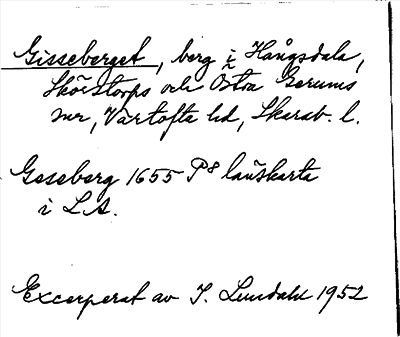 Gisseberget, berg i Hångsdala,
Skörstorps och Östra Gerums
snr, Vartofta hd, Skarab. l.
Geseberg 1655 P8 lantkarta
i L.A.
Excerperat av I. Lundahl 1952